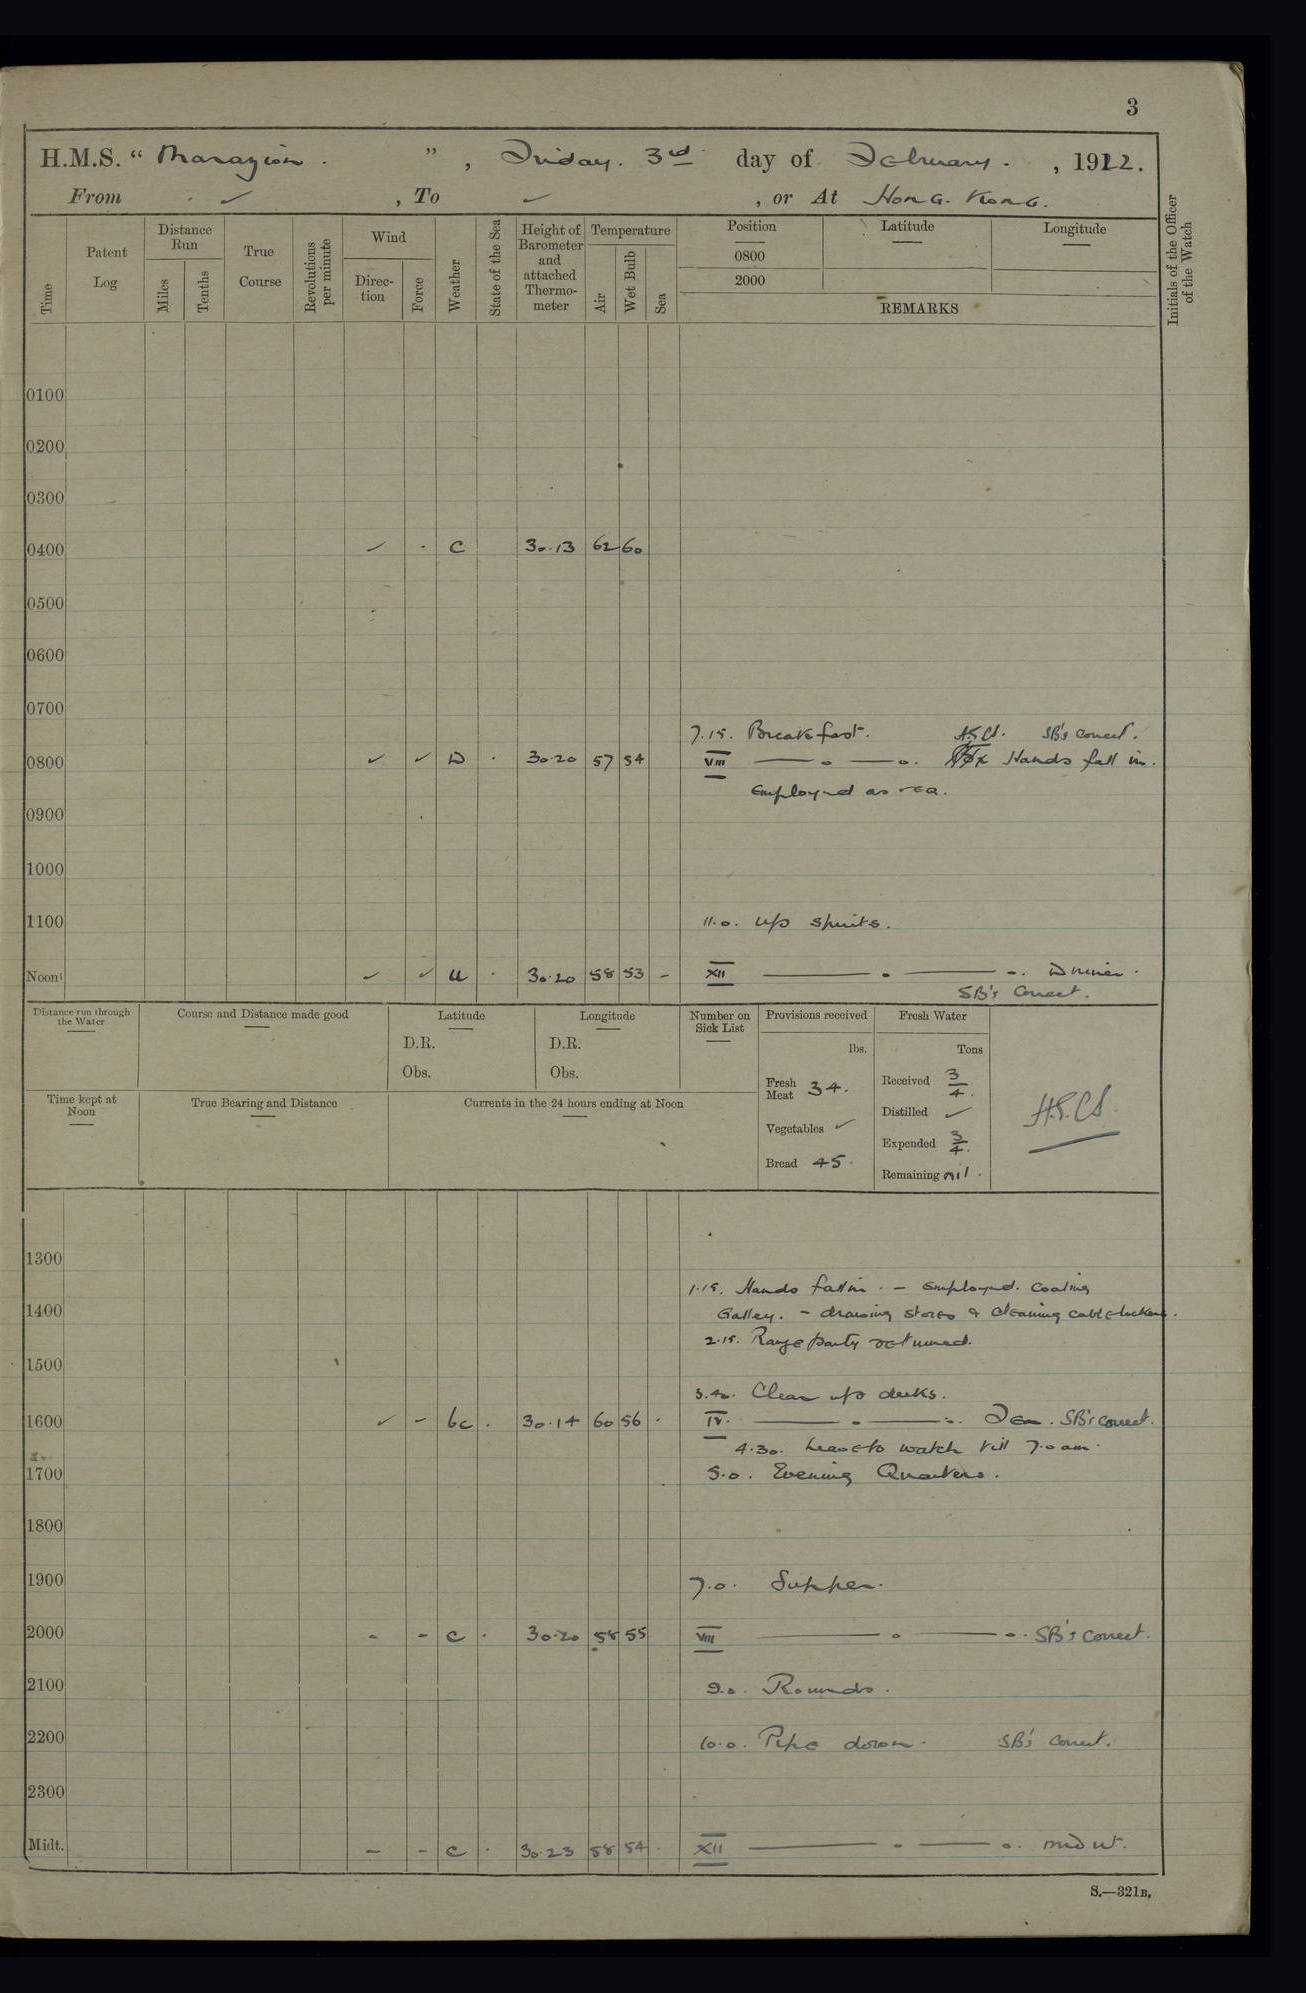 3
H.M.S. “ Marazion . ” , Friday. 3rd day of February. , 1922.
From ✓ , To ✓ , or At Hong. Kong.
Time
Patent Log
Distance Run
Miles
Tenths
True Course
Revolutions per minute
Wind
Direction
Force
Weather
State of the Sea
Height of Barometer and attached Thermometer
Temperature
Air
Wet Bulb
Sea
Position
0800
2000
Latitude
Longitude
REMARKS
Initials of the Officer of the Watch
0100
0200
0300
0400 ✓ · c 30.13 62 60
0500
0600
0700
7.15. Breakfast. SB's correct.
0800 ✓ ✓ 30.20 57 54 VIII Hands fall in.
Employed as req.
0900
1000
1100 11.0. Up spirits.
Noon ✓ ✓ 30.20 58 53 – XII Dinner.
SB's Correct.
Distance run through the Water
Course and Distance made good
Latitude
D.R.
Obs.
Longitude
D.R.
Obs.
Number on Sick List
Provisions received
lbs.
Fresh Meat 34.
Vegetables ✓
Bread 45.
Fresh Water
Tons
Received 3/4.
Distilled ✓
Expended 3/4.
Remaining nil.
Time kept at Noon
True Bearing and Distance
Currents in the 24 hours ending at Noon
1300
1.15. Hands fall in. – Employed. Coaling
1400 Galley. – drawing stores & cleaning cable lockers.
2.15. Range party returned.
1500
3.40. Clear up decks.
1600 ✓ – bc . 30.14 60 56 . IV. Tea. SB's correct.
4.30. Leave to watch till 7.0 am.
1700 5.0. Evening Quarters.
1800
1900 7.0. Supper.
2000 - - c . 30.20 58 55 VIII SB's correct.
2100 9.0. Rounds.
2200 10.0. Pipe down. SB's Correct.
2300
Midt. – - c . 30.23 58 54 . XII
S.—321B.